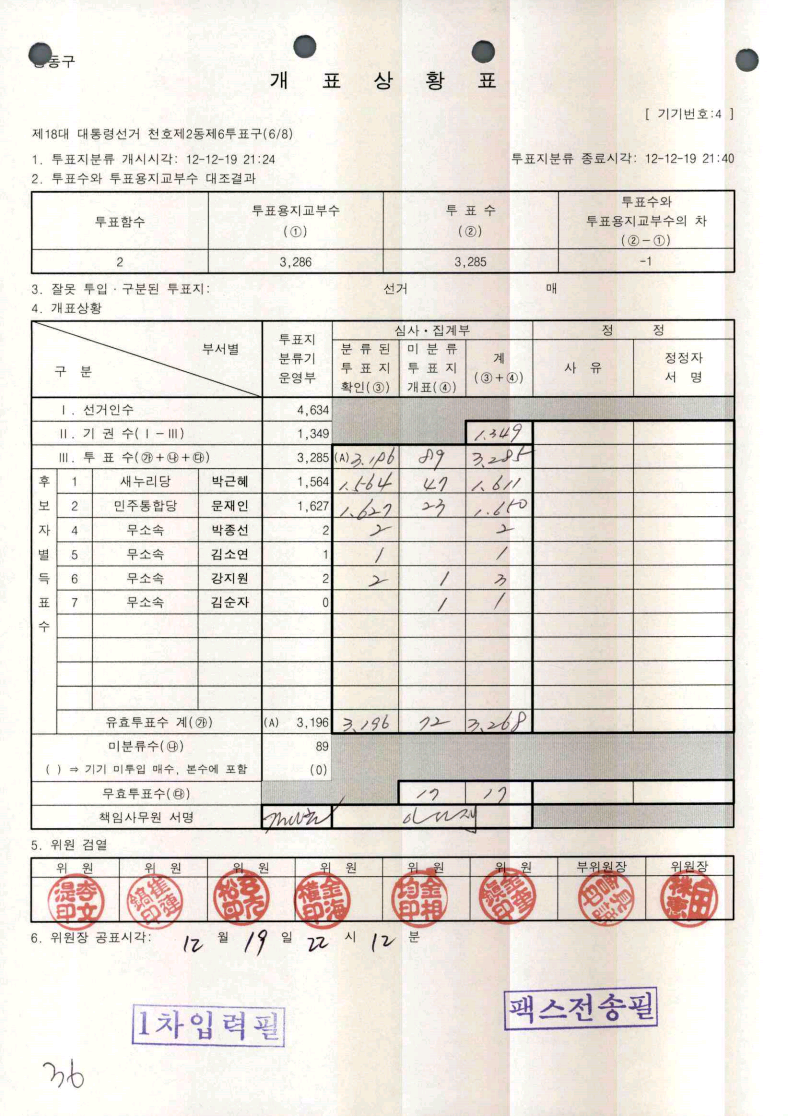 동구
개 표 상 황 표
[ 기기번호:4 ]
제18대 대통령선거 천호제2동제6투표구(6/8)
1. 투표지분류 개시시각: 12-12-19 21:24 투표지분류 종료시각: 12-12-19 21:40
2. 투표수와 투표용지교부수 대조결과
투표함수 투표용지교부수 (①) 투 표 수 (②) 투표수와 투표용지교부수의 차 (②-①)
2 3,286 3,285 -1
3. 잘못 투입·구분된 투표지: 선거 매
4. 개표상황
구 분 부서별 투표지 분류기 운영부 심사·집계부 정 정
분 류 된 투 표 지 확인(③) 미 분 류 투 표 지 개표(④) 계 (③+④) 사 유 정정자 서 명
Ⅰ. 선거인수 4,634
Ⅱ. 기 권 수(Ⅰ-Ⅲ) 1,349 1.349
Ⅲ. 투 표 수(㉮+㉯+㉰) 3,285 (A) 3.196 89 3.285
후보자별득표수
1 새누리당 박근혜 1,564 1.564 47 1.611
2 민주통합당 문재인 1,627 1.627 23 1.650
4 무소속 박종선 2 2 2
5 무소속 김소연 1 1 1
6 무소속 강지원 2 2 1 3
7 무소속 김순자 0 1 1
유효투표수 계(㉮) (A) 3,196 3.196 72 3.268
미분류수(㉯) 89
( ) ⇒ 기기 미투입 매수, 본수에 포함 (0)
무효투표수(㉰) 17 17
책임사무원 서명
5. 위원 검열
위 원 위 원 위 원 위 원 위 원 위 원 부위원장 위원장
6. 위원장 공표시각: 12 월 19 일 22 시 12 분
1차입력필
팩스전송필
36